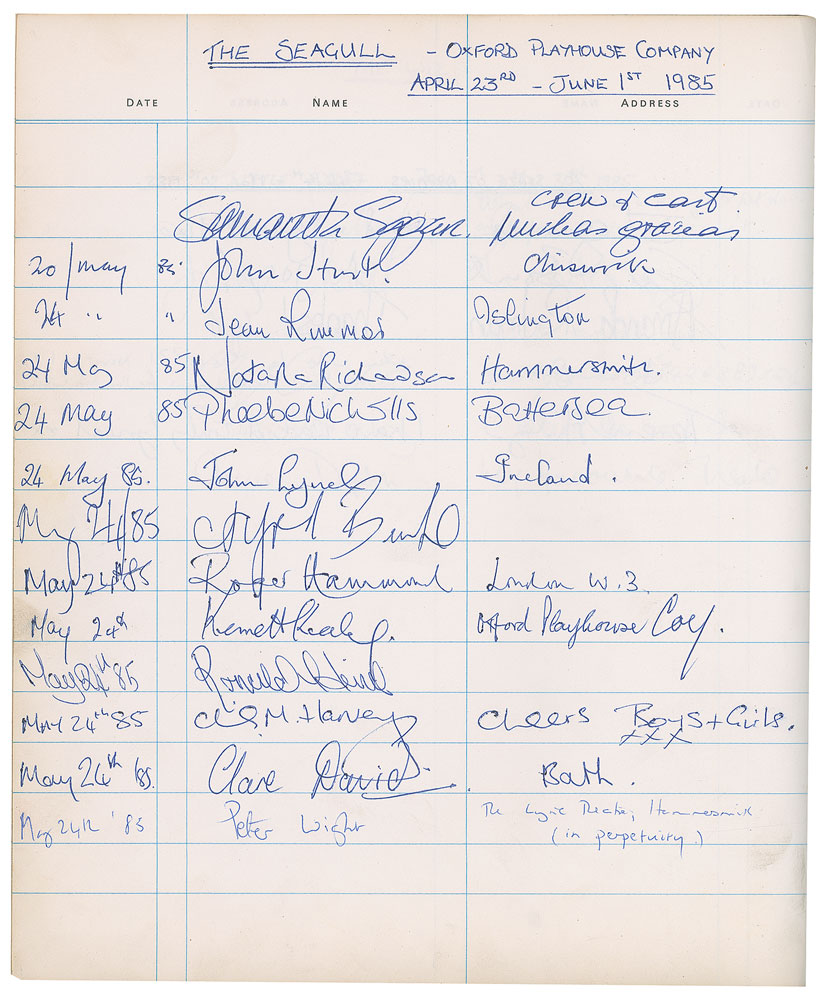 THE SEAGULL - OXFORD PLAYHOUSE COMPANY
APRIL 23RD - JUNE 1ST 1985
DATE NAME ADDRESS
crew & cast.
Samantha muchas gracias
20/may 85 John Sturt. Chiswick
24 " " Jean Rimmer Islington
24 May 85 Natasha Richardson Hammersmith.
24 May 85 Phoebe Nicholls Battersea.
24 May 85. John Lynch Ireland.
May 24/85
May 24th 85 Roger Hammond London W.3.
May 24th Kenneth Oxford Playhouse Coy.
May 24th 85 Ronald
MAY 24th 85 M. Harvey Cheers Boys + Girls.
xxx
May 24th 85. Clare Davies. Bath.
May 24th '85 Peter Wight The Lyric Theatre, Hammersmith
(in perpetuity.)